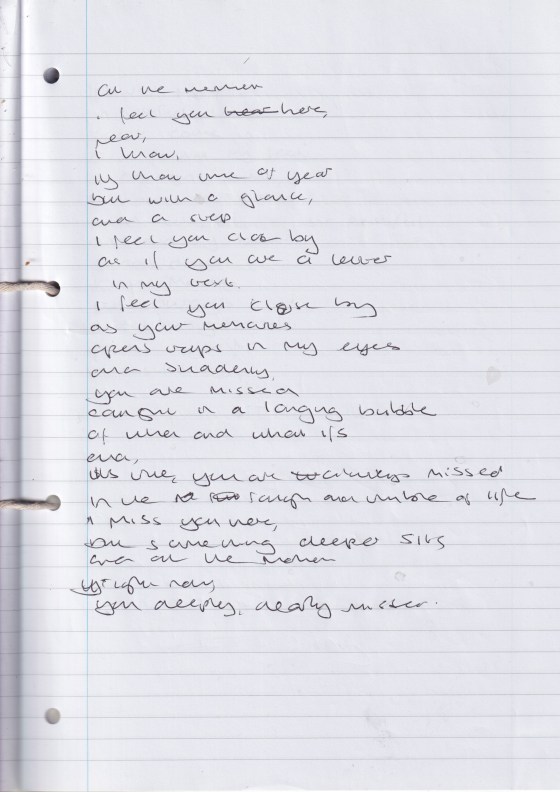 at the moment
I feel you here,
near,
I know,
its that time of year
but with a glance,
and a
I feel you close by
as if you are a letter
in my
I feel you close by
as your memories
opens in my eyes
and suddenly,
you are missed
caught in a longing bubble
of what and what ifs
and,
its true, you are always missed
in the laugh and of life
I miss you here,
but something deeper sits
and at the moment
right now,
you deeply, dearly missed.